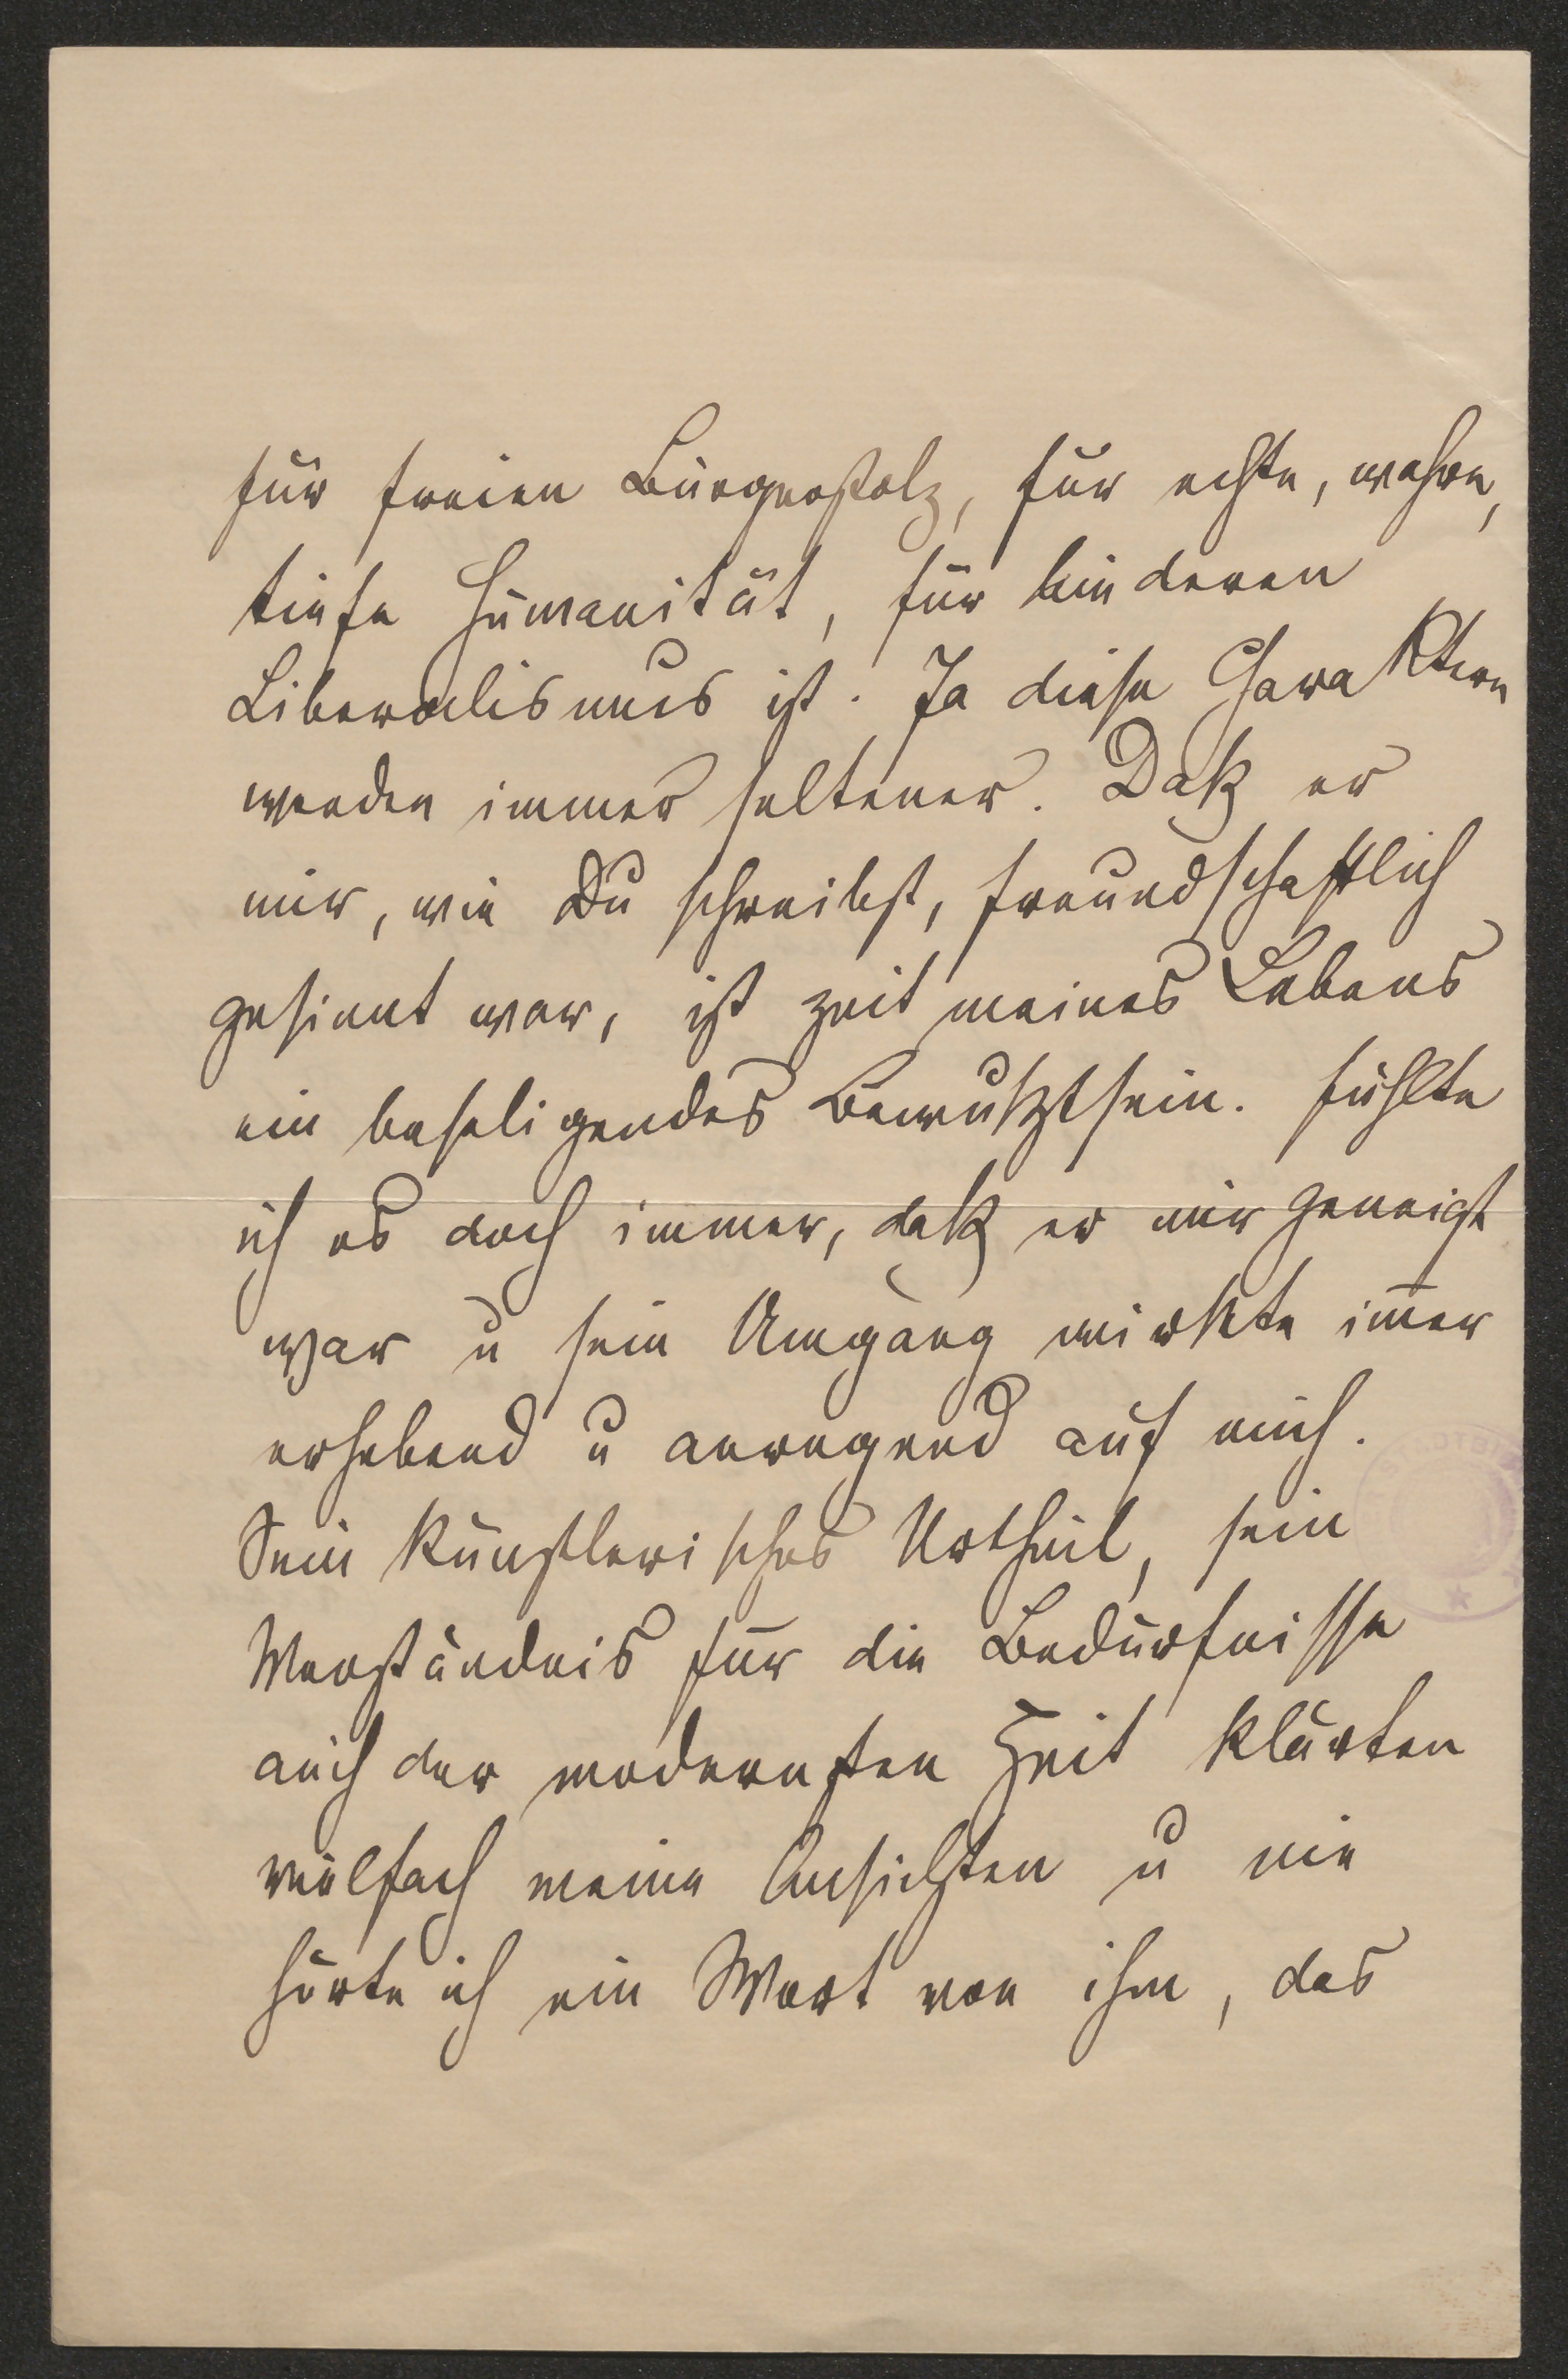 für freien Bürgerstolz, für echte, wahre,
tiefe Humanität, für
Liberalismus ist. Ja diese Charaktere
werden immer seltener. Daß er
mir, wie Du schreibst, freundschaftlich
gesinnt war, ist zeit meines Lebens
ein beseligendes Bewußtsein. Fühlte
ich es doch immer, daß er mir geneigt
war u sein Umgang wirkte im̅er
erhebend u anregend auf mich.
Sein künstlerisches Urtheil, sein
Verständnis für die Bedürfnisse
auch der modernsten Zeit klärten
vielfach meine Ansichten u nie
hörte ich ein Wort von ihm, das